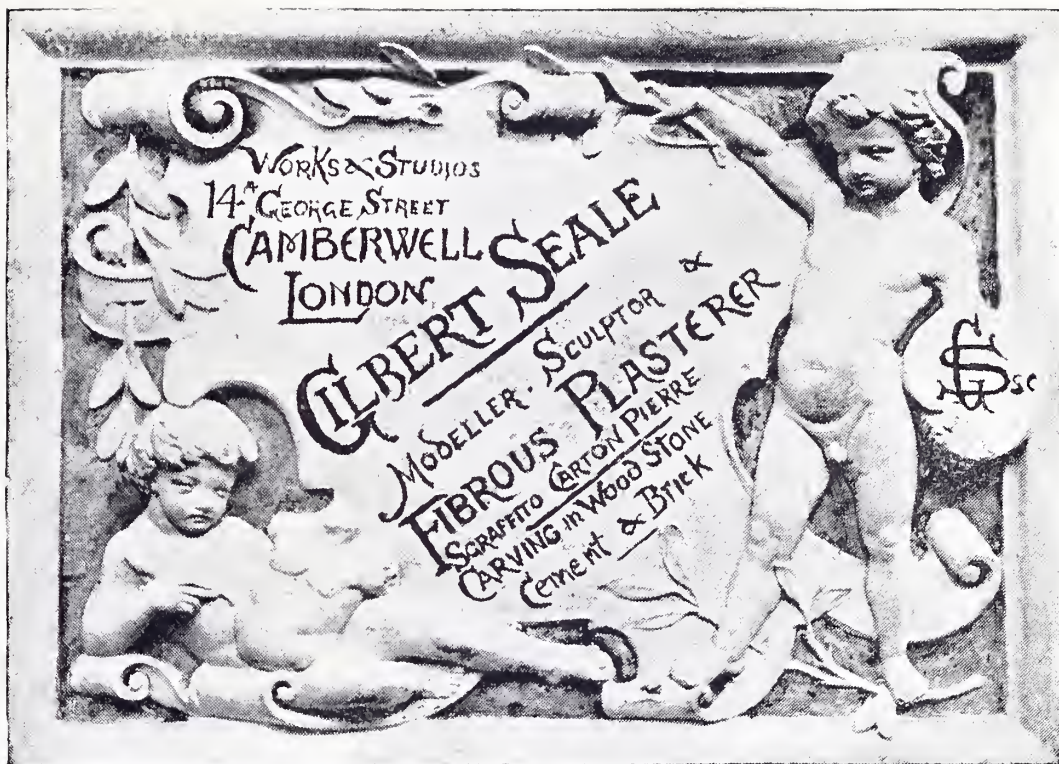 WORKS & STUDIOS
14A GEORGE STREET
CAMBERWELL
LONDON
GILBERT SEALE
MODELLER. SCULPTOR &
FIBROUS PLASTERER
SGRAFFITO CARTON PIERRE
CARVING in WOOD STONE
Cement & Brick
GS sc